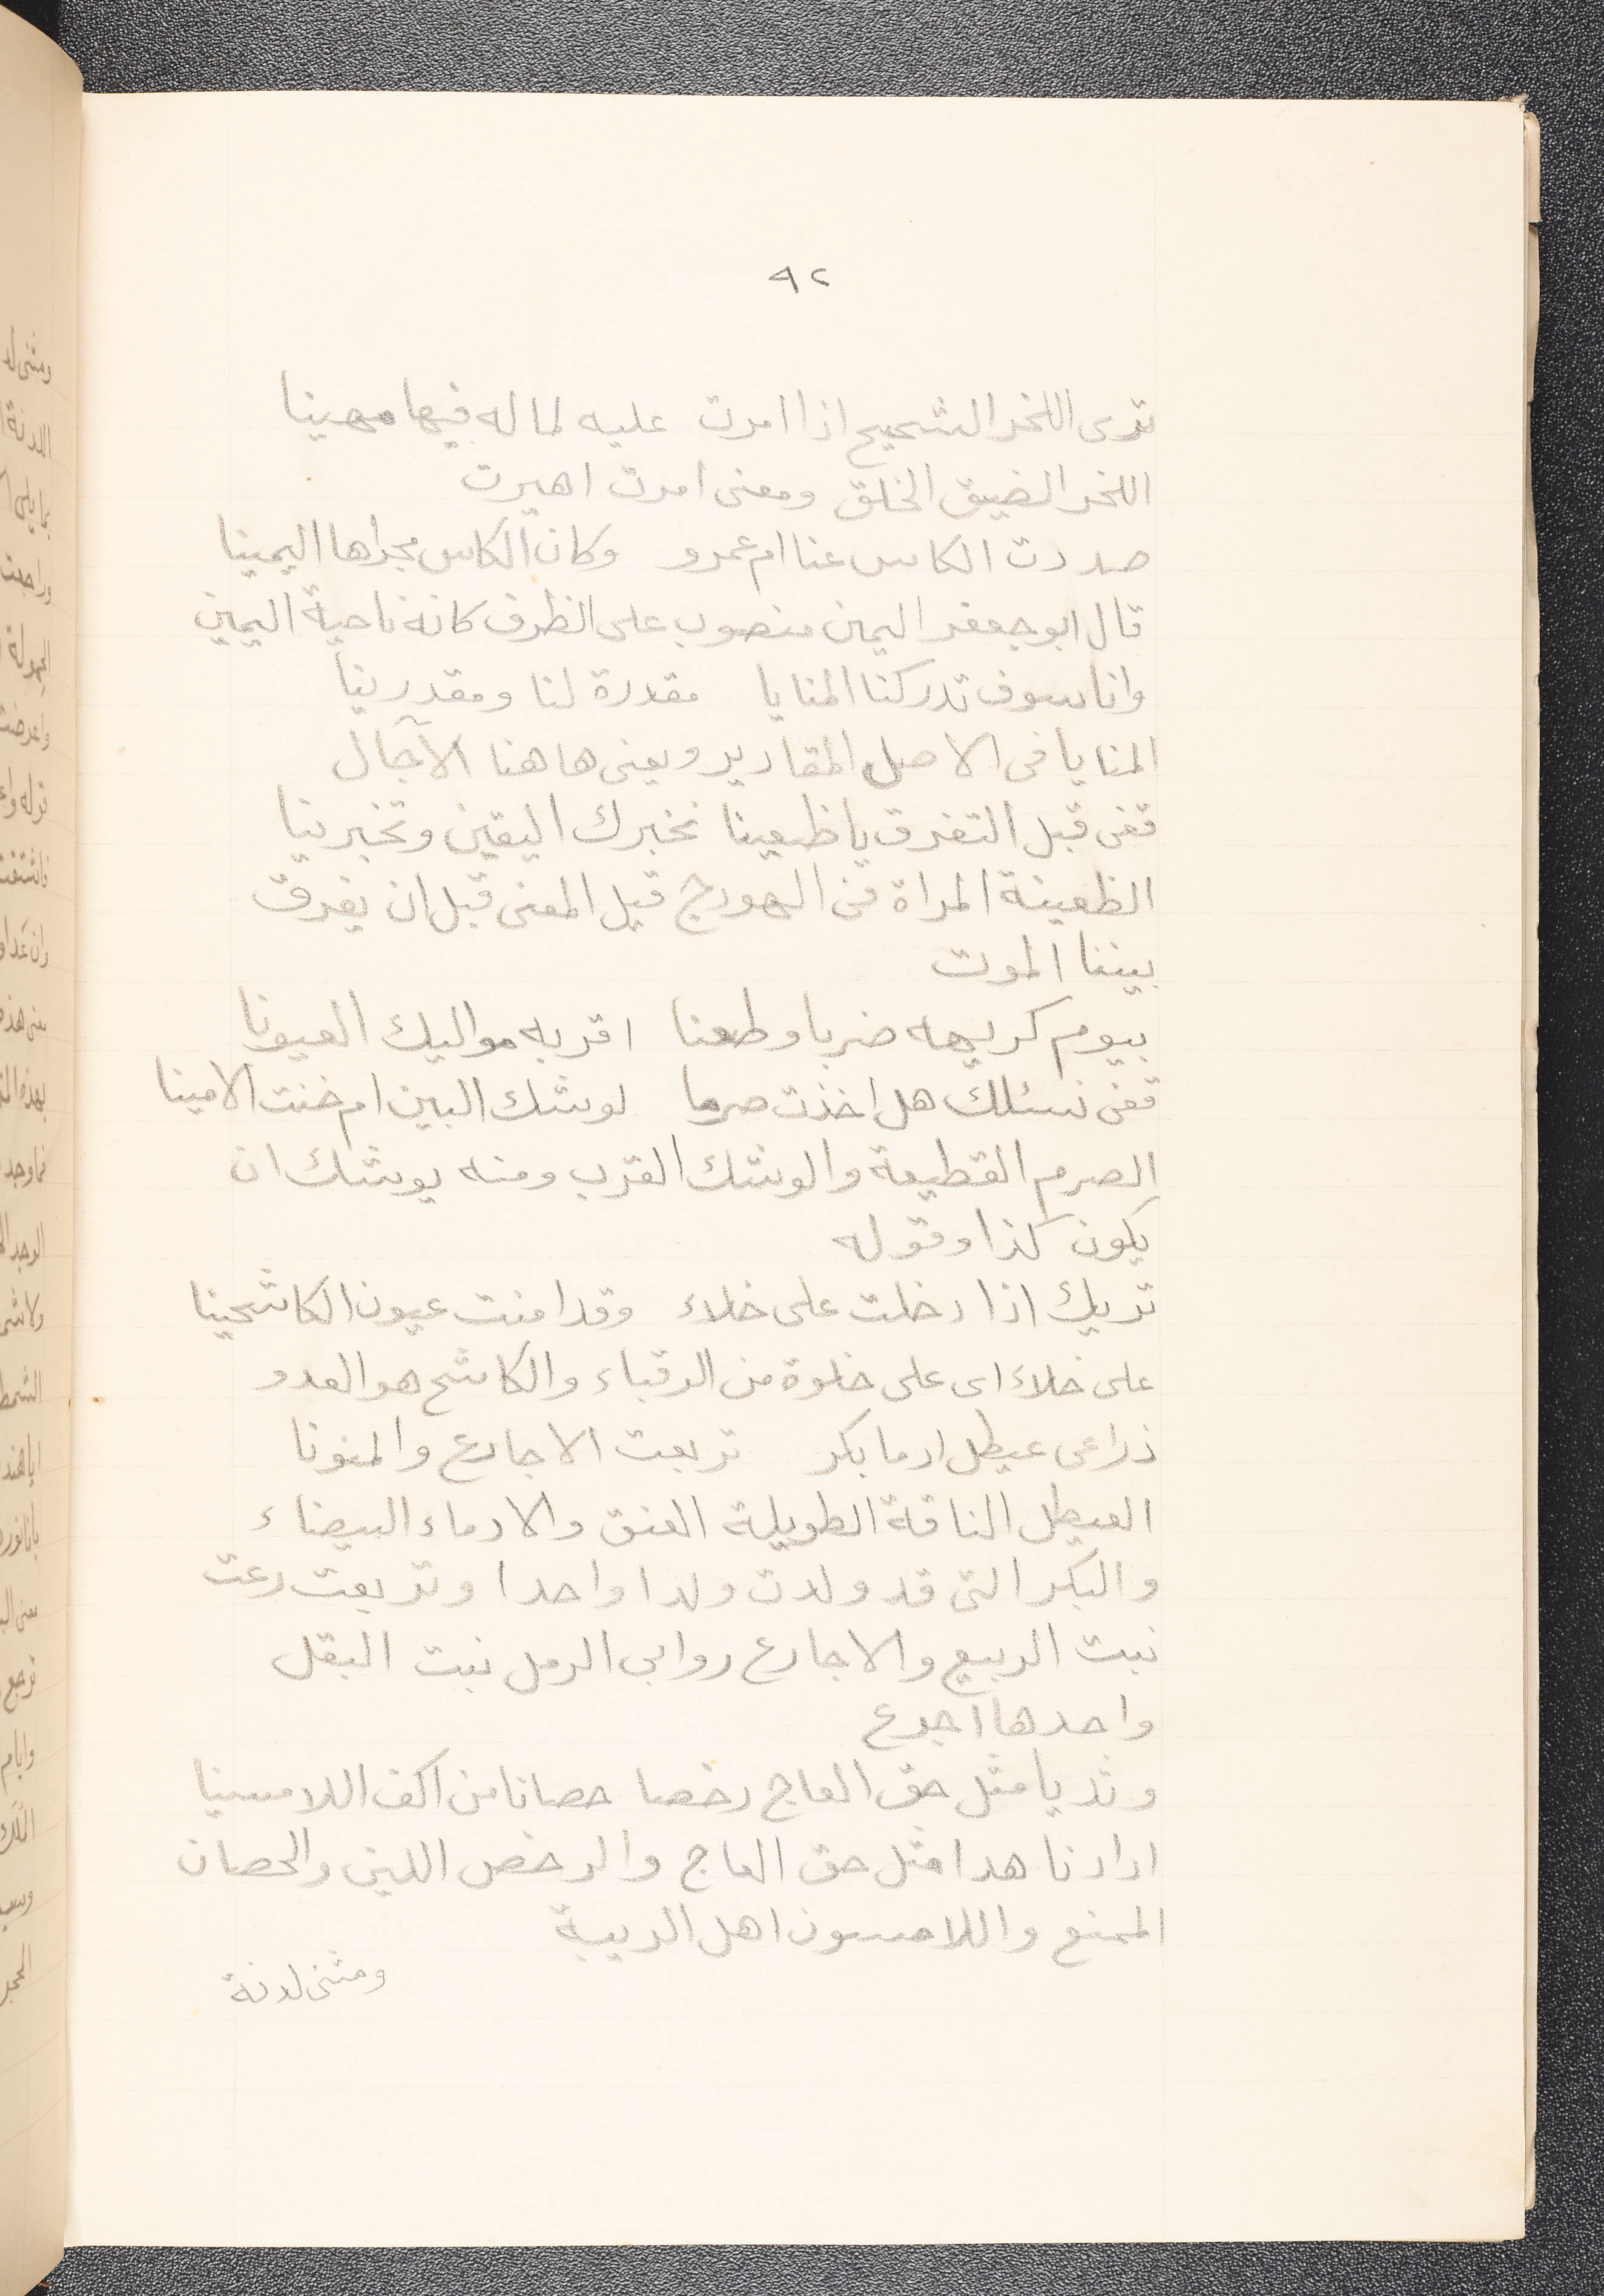 ٩٢
ترى اللخر الشحيح اذا امرت عليه لماله فيها مهينا
اللخر الضيق الخلق ومعنى امرت اهيرت
صددت الكاس عنا ام عمرو وكان الكاس مجراها اليمينا
قال ابو جعفر اليمين منصوب على الظرف كانه ناحية اليمين
وانا سوف تدركنا المنايا مقدرة لنا ومقدرينا
المنايا فى الاصل المقادير ويعنى هاهنا الآجال
قفى قبل التفرق يا ظعينا نخبرك اليقين وتخبرينا
الظعينة المراة فى الهودج قبل المعنى قبل ان يفرق
بيننا الموت
بيوم كريهه ضربا وطعنا اقر به مواليك العيونا
قفى نسئلك هل اخذت صرما لوشك البين ام خنت الامينا
الصرم القطيعة والوشك القرب ومنه يوشك ان
يكون كذا وقوله
تريك اذا دخلت على خلاء وقد امنت عيون الكاشحينا
على خلاء اى على خلوة من الرقباء والكاشح هو العدو
ذراعى عيطل ادما بكر تربعت الاجارع والمنونا
العيطل الناقة الطويلة العنق والادماء البيضاء
والبكر التى قد ولدت ولدا واحدا وتربعت رعت
نبت الربيع والاجارع روابى الرمل نبت البقل
واحدها اجرع
وثديا مثل حق العاج رخصا حصانا من اكف اللامسينا
اراد ناهدا مثل حق العاج والرخص اللين والحصان
الممنع واللامسون اهل الريبة
ومثنى لدنة